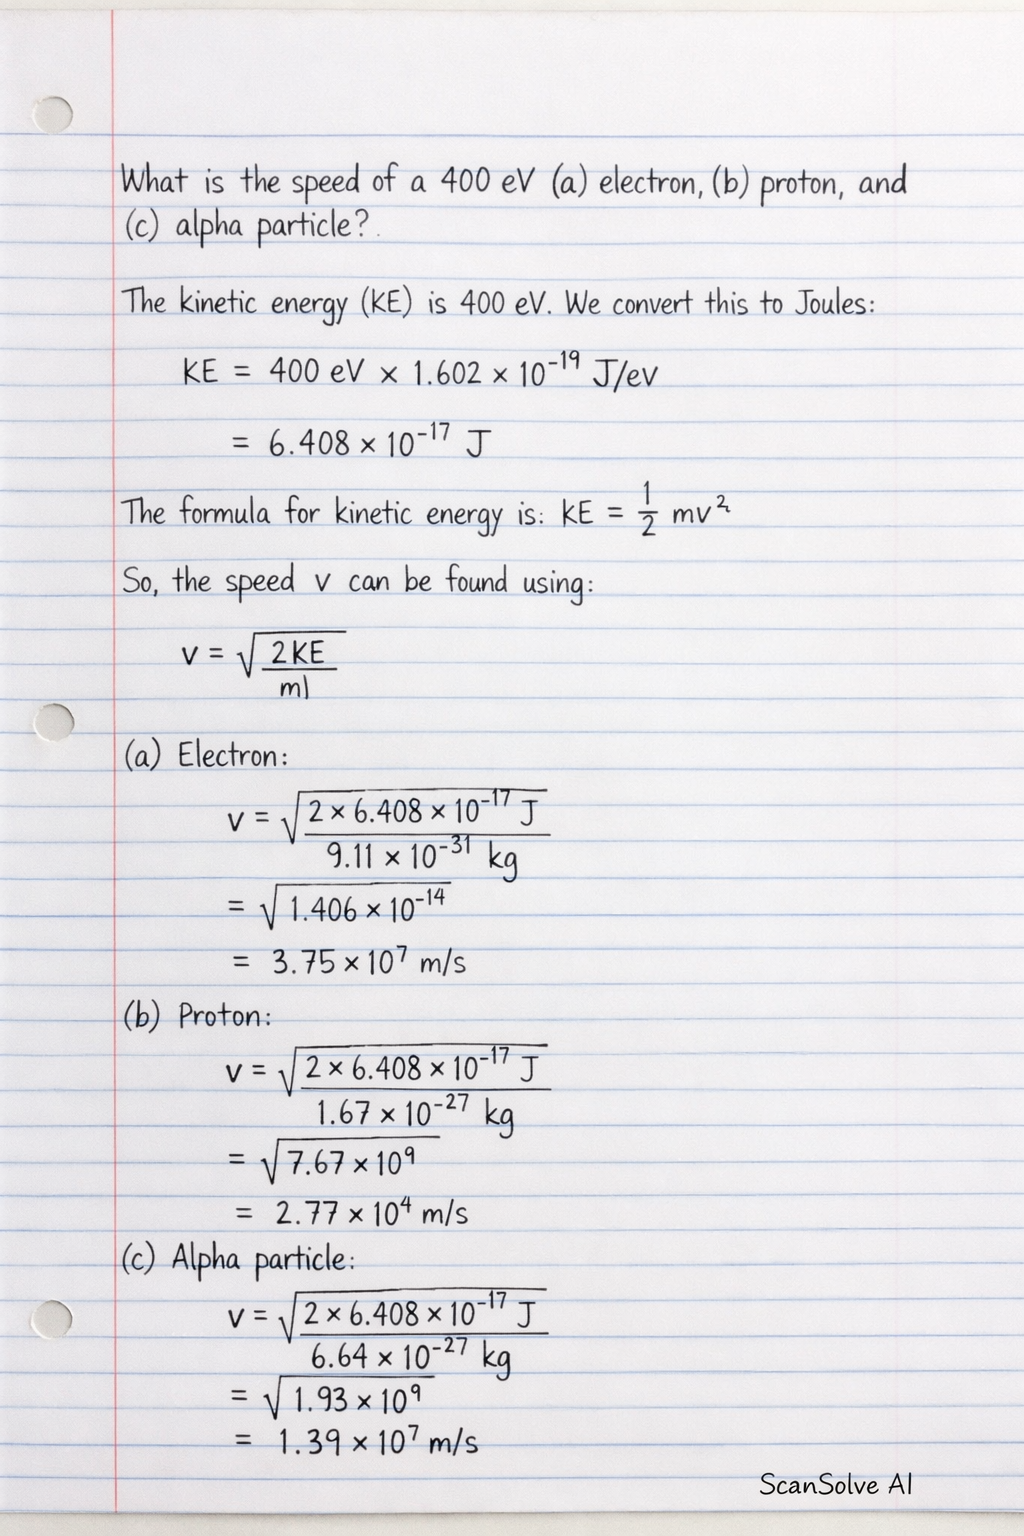 What is the speed of a 400 eV (a) electron, (b) proton, and
(c) alpha particle?.
The kinetic energy (KE) is 400 eV. We convert this to Joules:
KE = 400 eV × 1.602 × 10⁻¹⁹ J/ev
= 6.408 × 10⁻¹⁷ J
The formula for kinetic energy is: KE = 1/2 mv²
So, the speed v can be found using:
v = √(2KE / m)
(a) Electron:
v = √(2 × 6.408 × 10⁻¹⁷ J / 9.11 × 10⁻³¹ kg)
= √1.406 × 10⁻¹⁴
= 3.75 × 10⁷ m/s
(b) Proton:
v = √(2 × 6.408 × 10⁻¹⁷ J / 1.67 × 10⁻²⁷ kg)
= √7.67 × 10⁹
= 2.77 × 10⁴ m/s
(c) Alpha particle:
v = √(2 × 6.408 × 10⁻¹⁷ J / 6.64 × 10⁻²⁷ kg)
= √1.93 × 10⁹
= 1.39 × 10⁷ m/s
ScanSolve AI